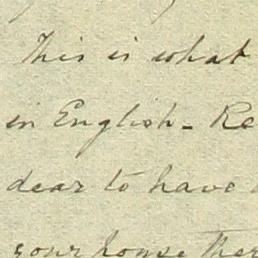 This is what
in English - Re
dear to have
your house Ther